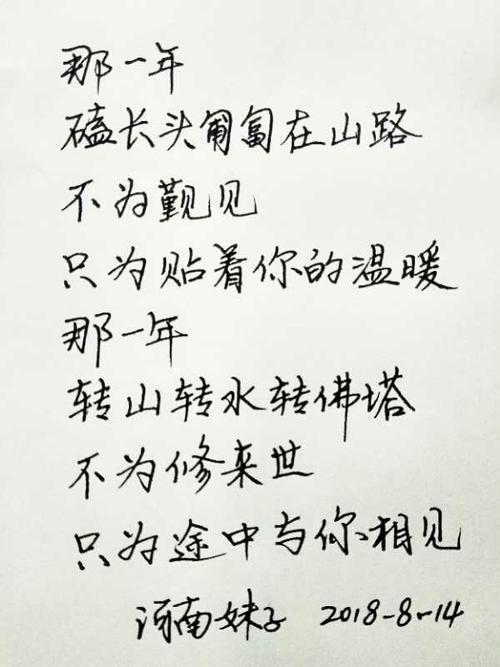 那一年
磕长头匍匐在山路
不为觐见
只为贴着你的温暖
那一年
转山转水转佛塔
不为修来世
只为途中与你相见
河南妹子 2018-8-14